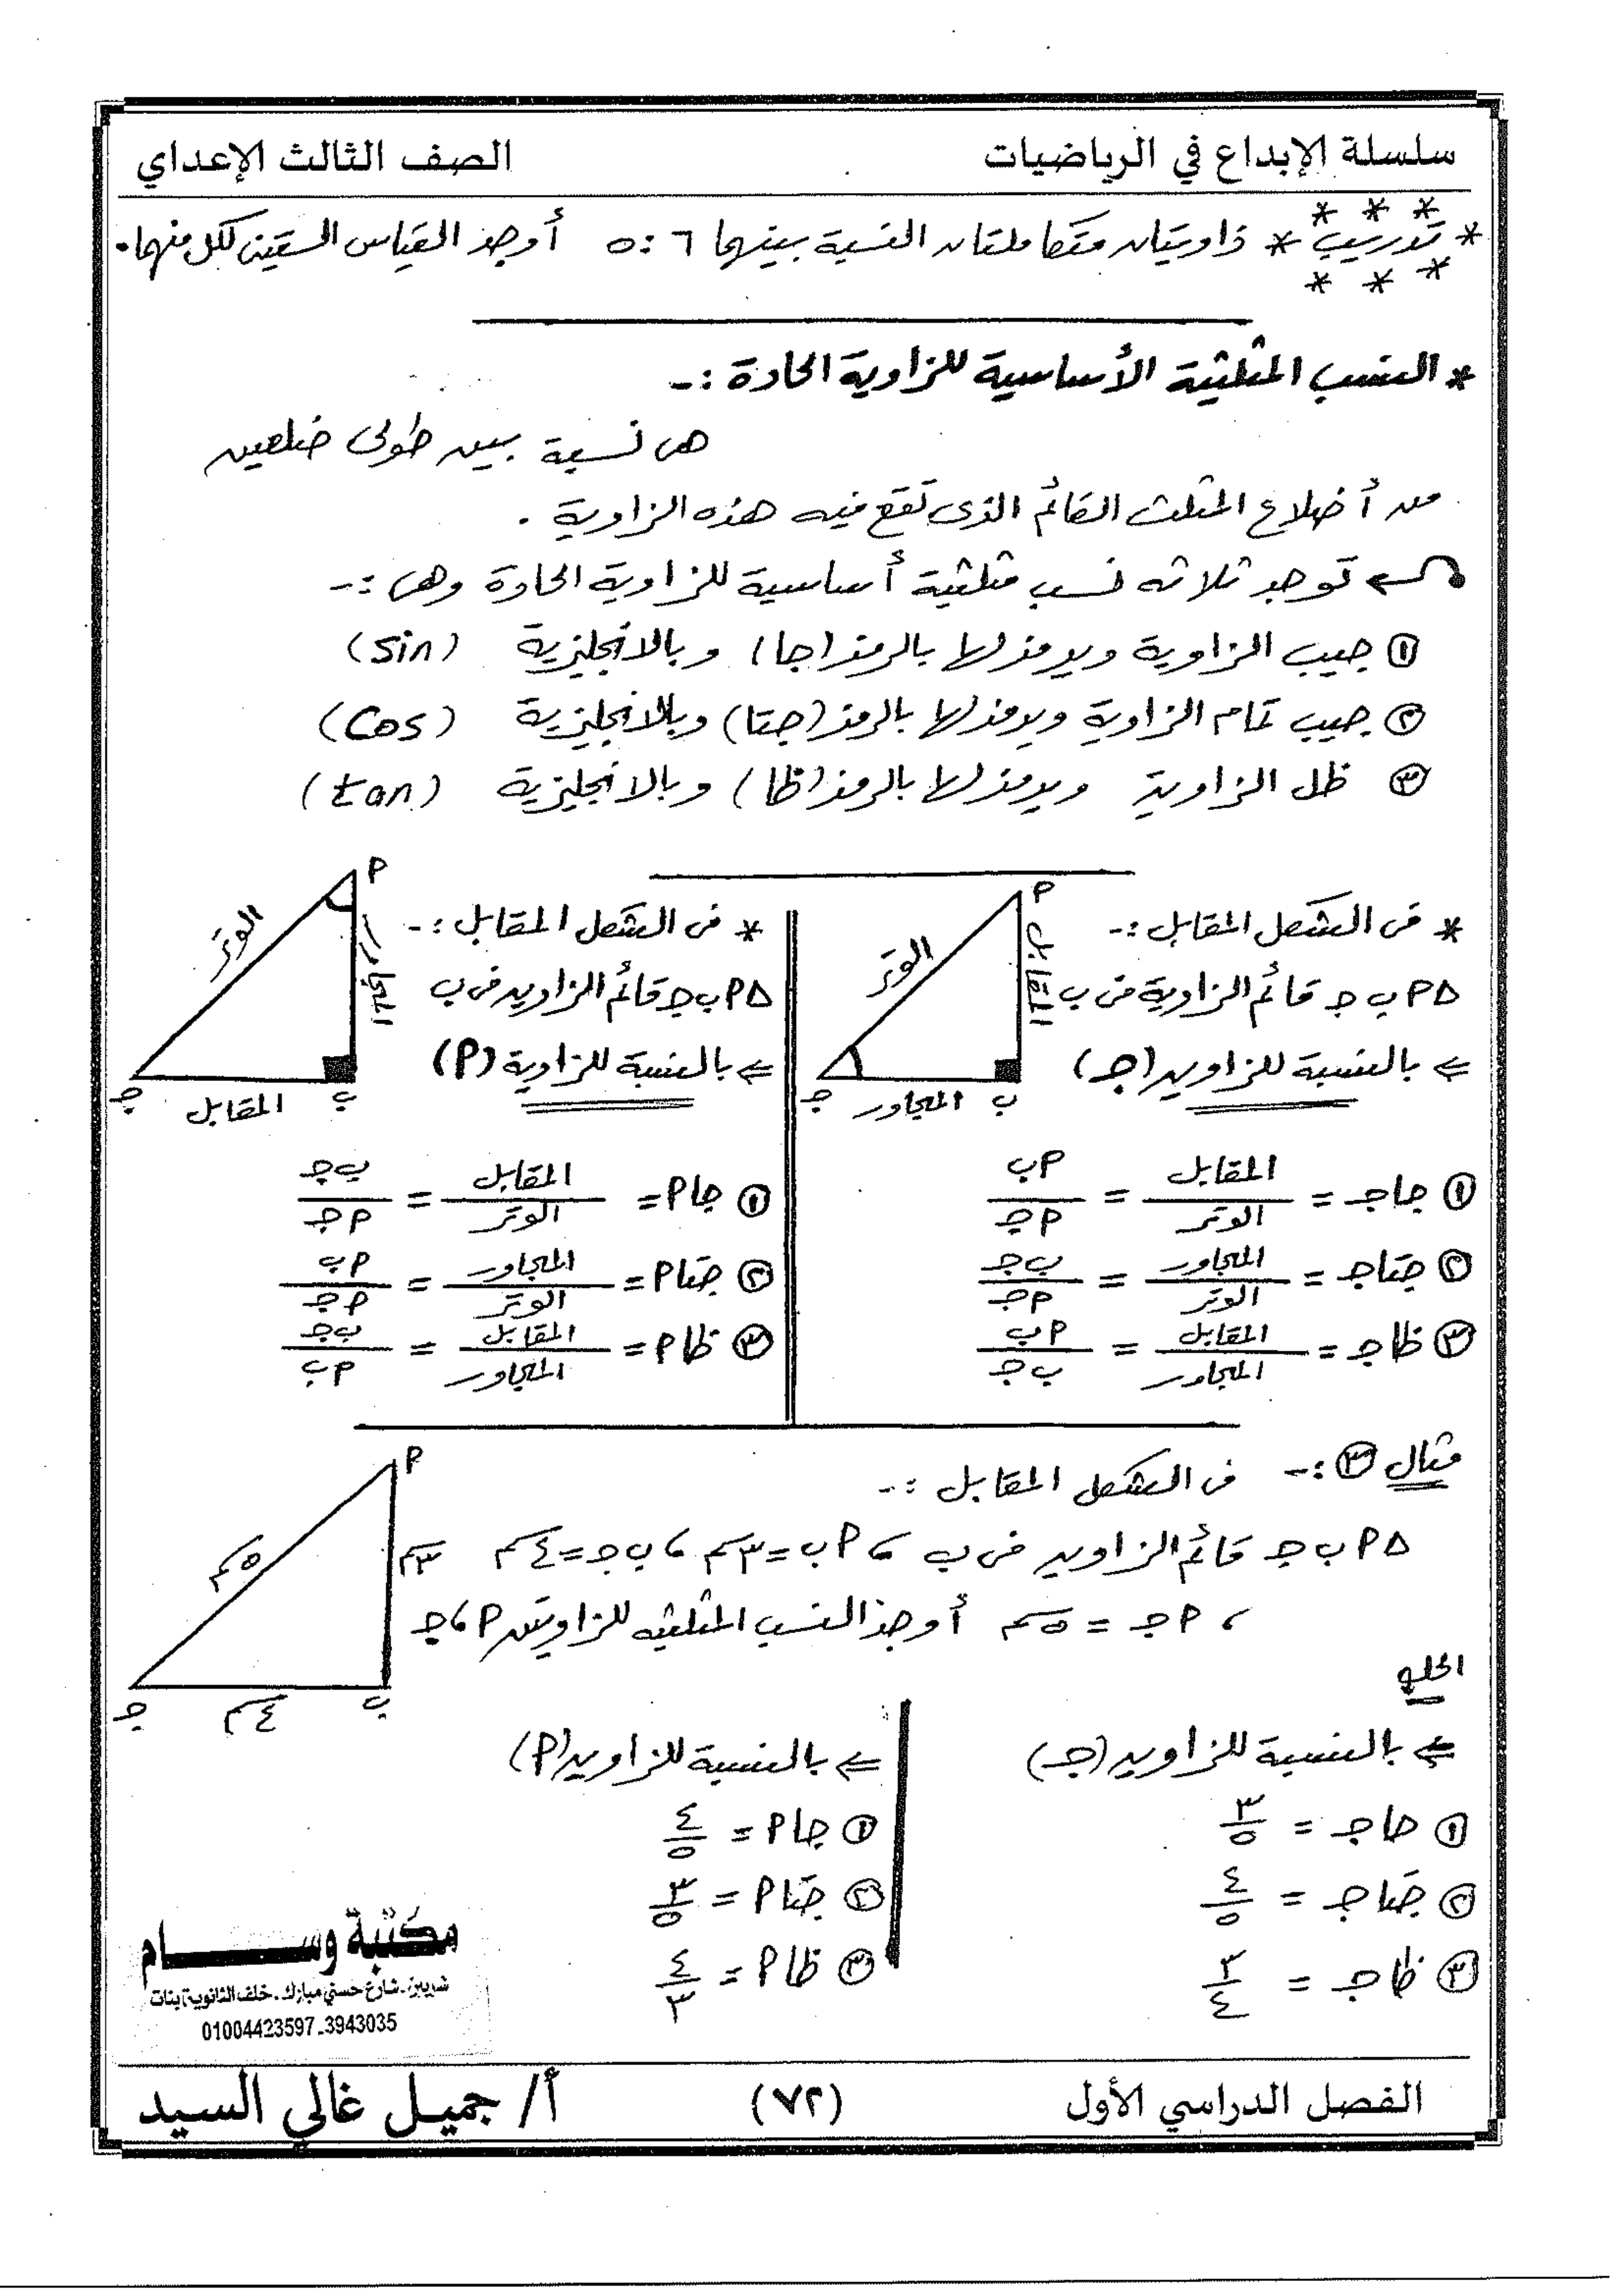 سلسلة الإبداع في الرياضيات
الصف الثالث الإعداي
* تدريب * زاويتان متكاملتان النسبة بينهما ٦ : ٥ أوجد القياس الستينى لكل منهما .
* النسب المثلثية الأساسية للزاوية الحادة :-
هى نسبة بين طولى ضلعين
من أضلاع المثلث القائم الذى تقع فيه هذه الزاوية .
توجد ثلاثه نسب مثلثية أساسية للزاوية الحادة وهى :-
① جيب الزاوية ويرمز لها بالرمز (جا) وبالانجليزية (sin)
② جيب تمام الزاوية ويرمز لها بالرمز (جتا) وبالانجليزية (Cos)
③ ظل الزاوية ويرمز لها بالرمز (ظا) وبالانجليزية (tan)
* فى الشكل المقابل :-
∆ م ب جـ قائم الزاوية فى ب
⇐ بالنسبة للزاوية (جـ)
م
المقابل
الوتر
جـ
المجاور
ب
① جا جـ = المقابل / الوتر = م ب / م جـ
② جتا جـ = المجاور / الوتر = ب جـ / م جـ
③ ظا جـ = المقابل / المجاور = م ب / ب جـ
* فى الشكل المقابل :-
∆ م ب جـ قائم الزاوية فى ب
⇐ بالنسبة للزاوية (م)
م
المجاور
الوتر
جـ
المقابل
ب
① جا م = المقابل / الوتر = ب جـ / م جـ
② جتا م = المجاور / الوتر = م ب / م جـ
③ ظا م = المقابل / المجاور = ب جـ / م ب
مثال ③ :- فى الشكل المقابل :-
∆ م ب جـ قائم الزاوية فى ب ، م ب = ٣سم ، ب جـ = ٤سم
، م جـ = ٥سم أوجد النسب المثلثيه للزاويتين م ، جـ
م
٣سم
٥سم
جـ
٤سم
ب
الحل
⇐ بالنسبة للزاوية (جـ)
① جا جـ = ٣/٥
② جتا جـ = ٤/٥
③ ظا جـ = ٣/٤
⇐ بالنسبة للزاوية (م)
① جا م = ٤/٥
② جتا م = ٣/٥
③ ظا م = ٤/٣
مكتبة وسام
شربين-شارع حسني مبارك-خلف الثانوية بنات
01004423597-3943035
الفصل الدراسي الأول
(٧٢)
أ/ جميل غالي السيد